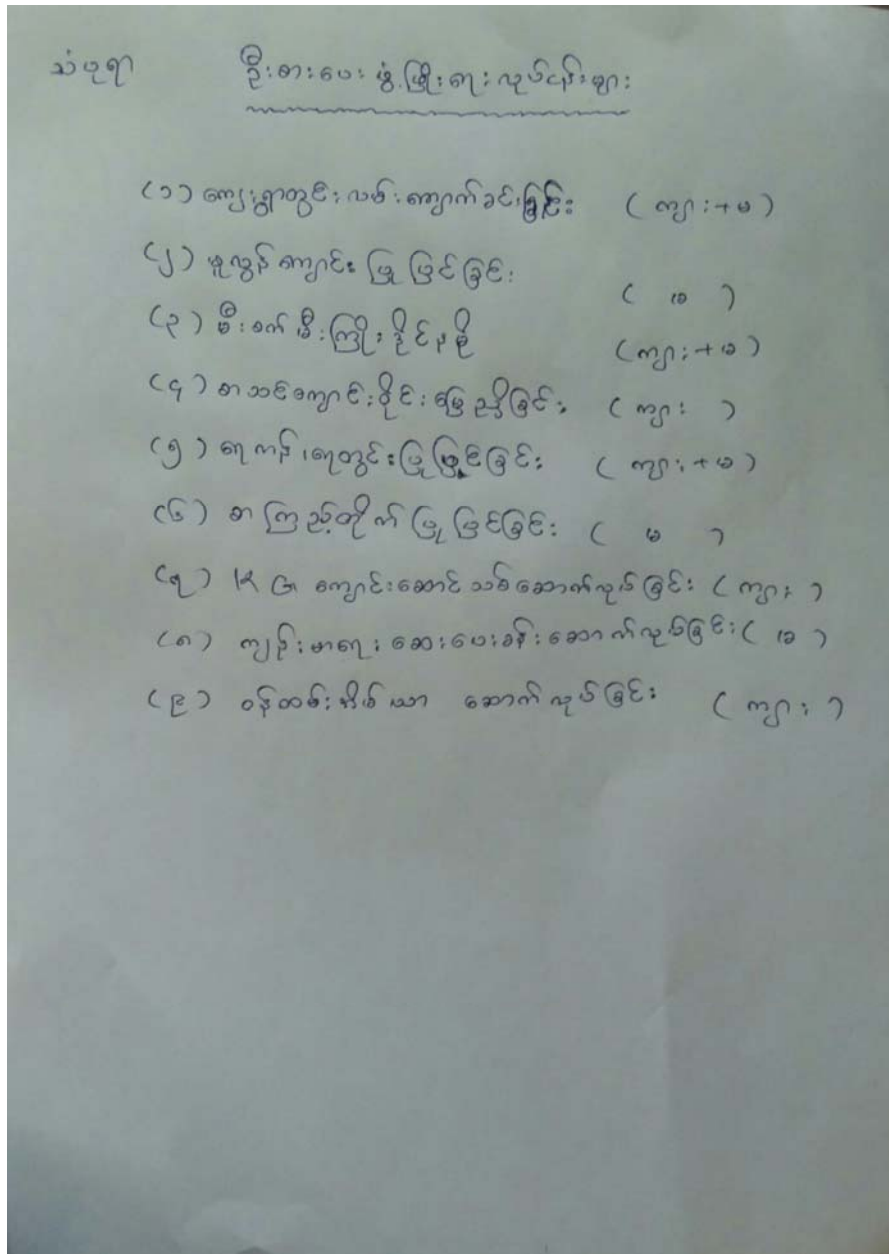 သံပုရာ ဦးစားပေး ဖွံ့ဖြိုးရေး လုပ်ငန်းများ
(၁) ကျေးရွာတွင်း လမ်းကျောက်ခင်းခြင်း (ကျား+မ)
(၂) မူလွန်ကျောင်း ပြုပြင်ခြင်း (မ)
(၃) မီးစက် မီးကြိုး ဒိုင်နမို (ကျား+မ)
(၄) စာသင်ကျောင်းဝိုင်း မြေညှိခြင်း (ကျား)
(၅) ရေကန်၊ ရေတွင်း ပြုပြင်ခြင်း (ကျား+မ)
(၆) စာကြည့်တိုက် ပြုပြင်ခြင်း (မ)
(၇) KG ကျောင်းဆောင်သစ်ဆောက်လုပ်ခြင်း (ကျား)
(၈) ကျန်းမာရေး ဆေးပေးခန်းဆောက်လုပ်ခြင်း (မ)
(၉) ဝန်ထမ်းအိမ်ယာ ဆောက်လုပ်ခြင်း (ကျား)